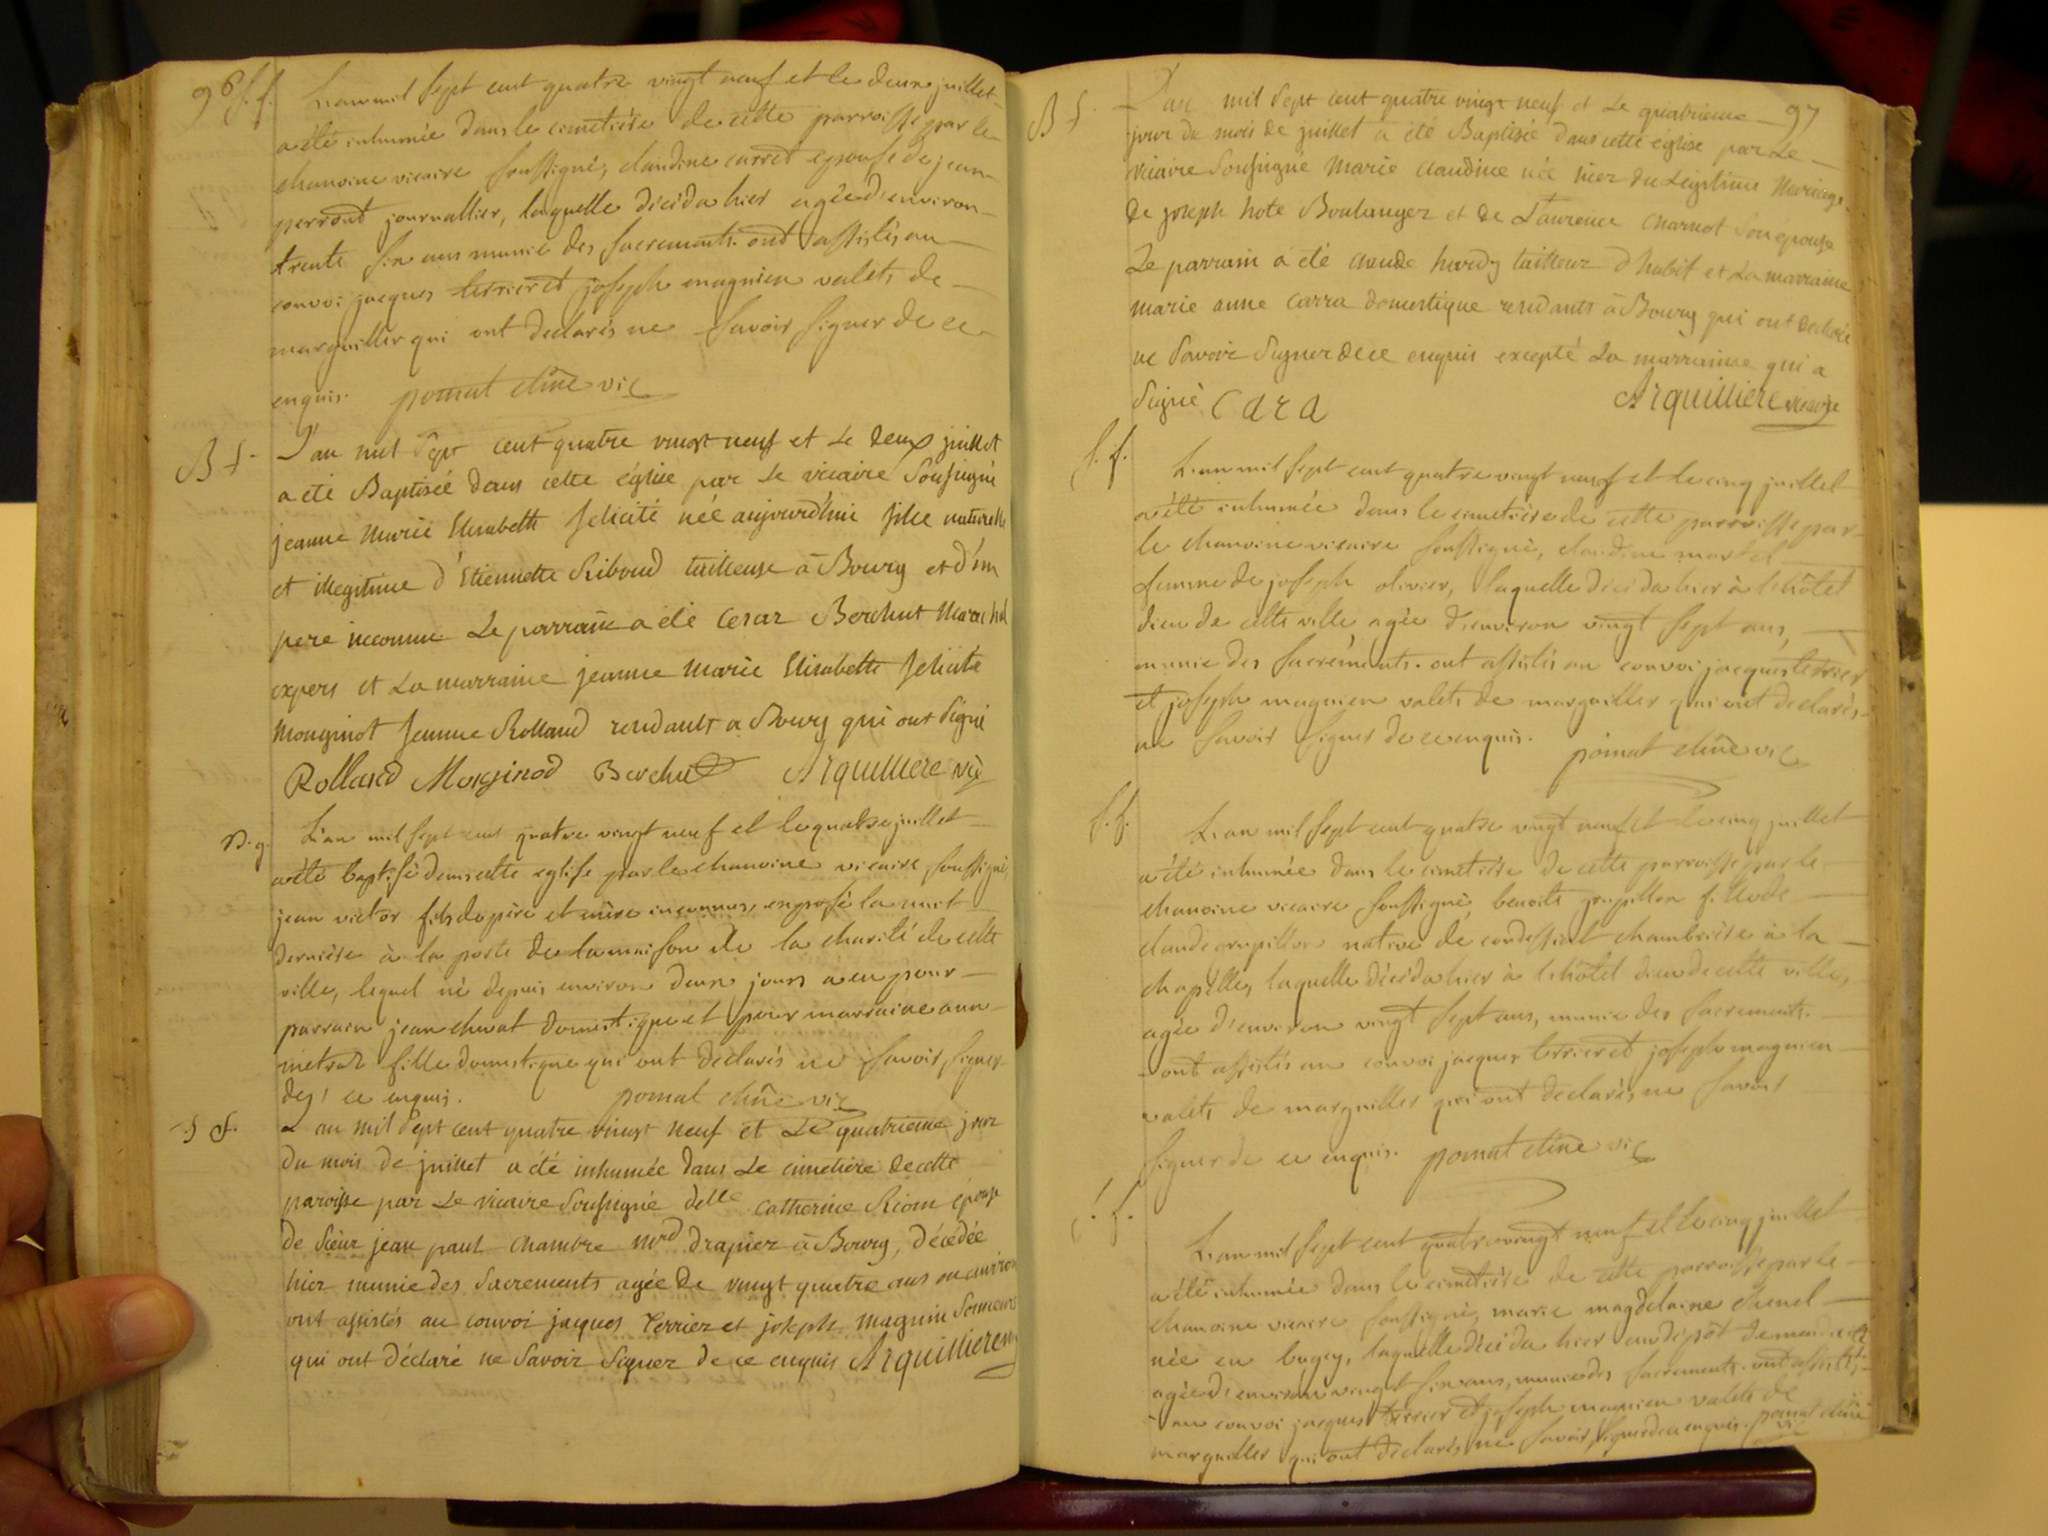 96
S. f.
L'an mil sept cent quatre vingt neuf et le deux juillet
a été inhumée dans le cimetière de cette parroisse par le
chanoine vicaire soussigné, claudine carret epouse de jean
perrout journallier, laquelle décéda hier agée d'environ
trente six ans munie des sacrements. ont assistés au
convoi jacques terrier et joseph magnien valets de
marguiller qui ont declarés ne savoir signer de ce
enquis. pomat chne vic
B f.
L'an mil sept cent quatre vingt neuf et Le deux juillet
a été Baptisée dans cette église par Le vicaire Soussigné
jeanne Marie Elisabette felicité née aujourd'hui fille naturelle
et illegitime d'Etiennette Riboud tailleuse à Bourg et d'un
pere inconnu Le parrain a été Cesar Berchut Marechal
expers et La marraine jeanne Marie Elisabette felicité
Monginot femme Rolland residants a Bourg qui ont Signé
Rolland Monginod Berchut Arquilliere vic
B. g.
L'an mil sept cent quatre vingt neuf et le quatre juillet
a été baptisé dans cette eglise par le chanoine vicaire soussigné,
jean victor fils de père et mère inconnus, exposé la nuit
dernière à la porte de la maison de la charité de cette
ville, lequel né depuis environ deux jours a eu pour
parrain jean chevat domestique et pour marraine ann
metral fille domestique qui ont declarés ne savoir signer
de ce enquis. pomat chne vic
S f.
L'an mil Sept cent quatre vingt neuf et Le quatrieme jour
du mois de juillet a été inhumée dans Le cimetière de cette
paroisse par Le vicaire Soussigné delle Catherine Riom épouse
de Sieur jean paul Chambre mrd drapier à Bourg, décédée
hier munie des Sacrements agée de vingt quatre ans ou environ
ont assistés au convoi jacques Terrier et joseph magnin Sonneurs
qui ont déclaré ne Savoir Signer de ce enquis Arquilliere
97
B f.
L'an mil Sept cent quatre vingt neuf et Le quatrieme
jour du mois de juillet a été Baptisée dans cette église par Le
vicaire Soussigné Marie claudine née hier du Legitime Mariage
de joseph hote Boulanger et de Laurence charnot Son epouse
Le parrain a été claude hardy tailleur d'habit et La marraine
marie anne Carra domestique residants à Bourg qui ont declaré
ne Savoir Signer de ce enquis excepté La marraine qui a
Signé Cara Arquilliere vicaire
S. f.
L'an mil sept cent quatre vingt neuf et le cinq juillet
a été inhumée dans le cimetière de cette parroisse par
le chanoine vicaire soussigné, claudine martel
femme de joseph olivier, laquelle décéda hier à l'hôtel
dieu de cette ville agée d'environ vingt sept ans,
munie des sacréments. ont assistés au convoi jacques terrier
et joseph magnien valets de marguiller qui ont declarés
ne savoir signer de ce enquis. pomat chne vic
S. f.
L'an mil sept cent quatre vingt neuf et le cinq juillet
a été inhumée dans le cimetière de cette parroisse par le
chanoine vicaire soussigné, benoite grupillon fille de
claude grupillon native de condessiat chambrière à la
chapelle, laquelle décéda hier à l'hôtel dieu de cette ville,
agée d'environ vingt sept ans, munie des sacrements.
ont assistés au convoi jacques terrier et joseph magnien
valets de marguiller qui ont declarés ne savoir
signer de ce enquis. pomat chne vic
S. f.
L'an mil sept cent quatre vingt neuf et le cinq juillet
a été inhumée dans le cimetière de cette parroisse par le
chanoine vicaire soussigné, marie magdelaine
née en bugey, laquelle décéda hier au dépôt de
agée d'environ vingt six ans, munie des sacrements. ont assistés
au convoi jacques terrier et joseph magnien valets de
marguiller qui ont declarés ne savoir signer de ce enquis. pomat chne vic